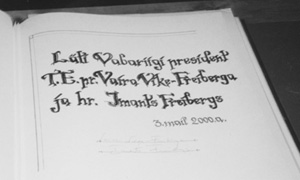 Läti Vabariigi president
T.E. pr. Vaira Vike-Freiberga
ja hr. Imants Freibergs
3. mail 2000.a.